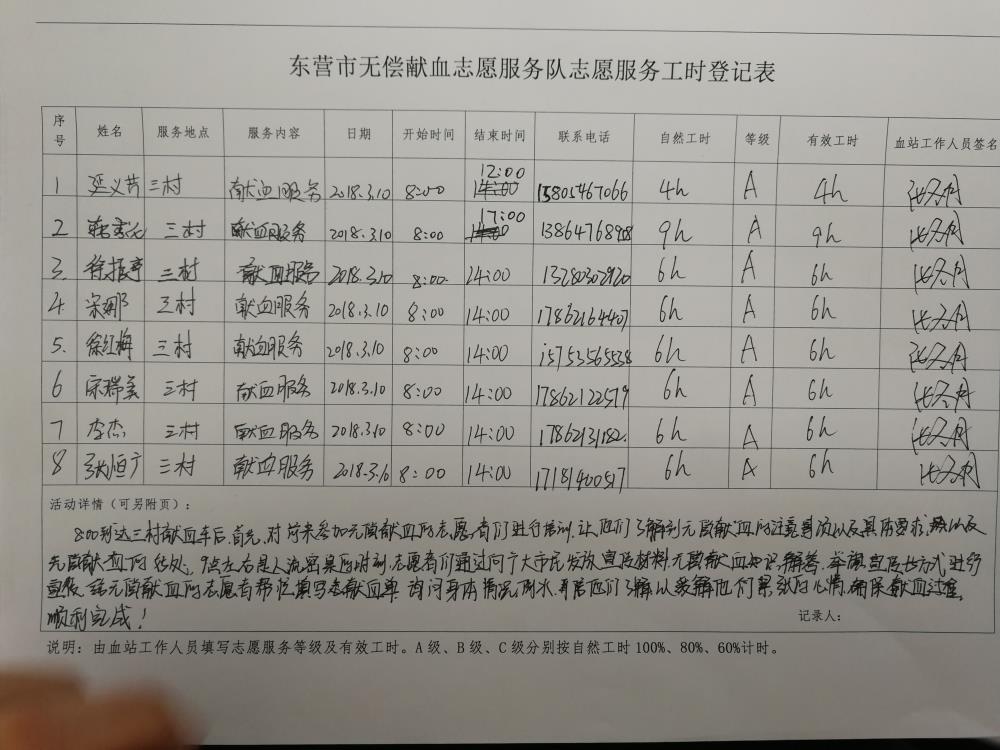 东营市无偿献血志愿服务队志愿服务工时登记表
序号 姓名 服务地点 服务内容 日期 开始时间 结束时间 联系电话 自然工时 等级 有效工时 血站工作人员签名
1 三村 献血服务 2018.3.10 8:00 12:00 15805467066 4h A 4h
2 三村 献血服务 2018.3.10 8:00 17:00 9h A 9h
3. 三村 献血服务 2018.3.10 8:00 14:00 6h A 6h
4. 宋娜 三村 献血服务 2018.3.10 8:00 14:00 17862164407 6h A 6h
5. 徐红梅 三村 献血服务 2018.3.10 8:00 14:00 15753565538 6h A 6h
6 宋瑞美 三村 献血服务 2018.3.10 8:00 14:00 17862122579 6h A 6h
7 李杰 三村 献血服务 2018.3.10 8:00 14:00 17862131182. 6h A 6h
8 张恒广 三村 献血服务 2018.3.10 8:00 14:00 17181400517 6h A 6h
活动详情（可另附页）：
8:00到达三村献血车后,首先,对前来参加无偿献血的志愿者们进行培训,让他们了解到无偿献血的注意事项以及具体要求,以及
无偿献血的好处。9点左右是人流密集的时刻,志愿者们通过向广大市民发放宣传材料,无偿献血知识解答,举旗宣传等方式进行
宣传,给无偿献血的志愿者帮忙填写表献血单,询问身体情况,倒水,并陪他们了解以缓解他们紧张的心情,确保献血过程
顺利完成！
记录人：
说明：由血站工作人员填写志愿服务等级及有效工时。A 级、B 级、C 级分别按自然工时 100%、80%、60%计时。